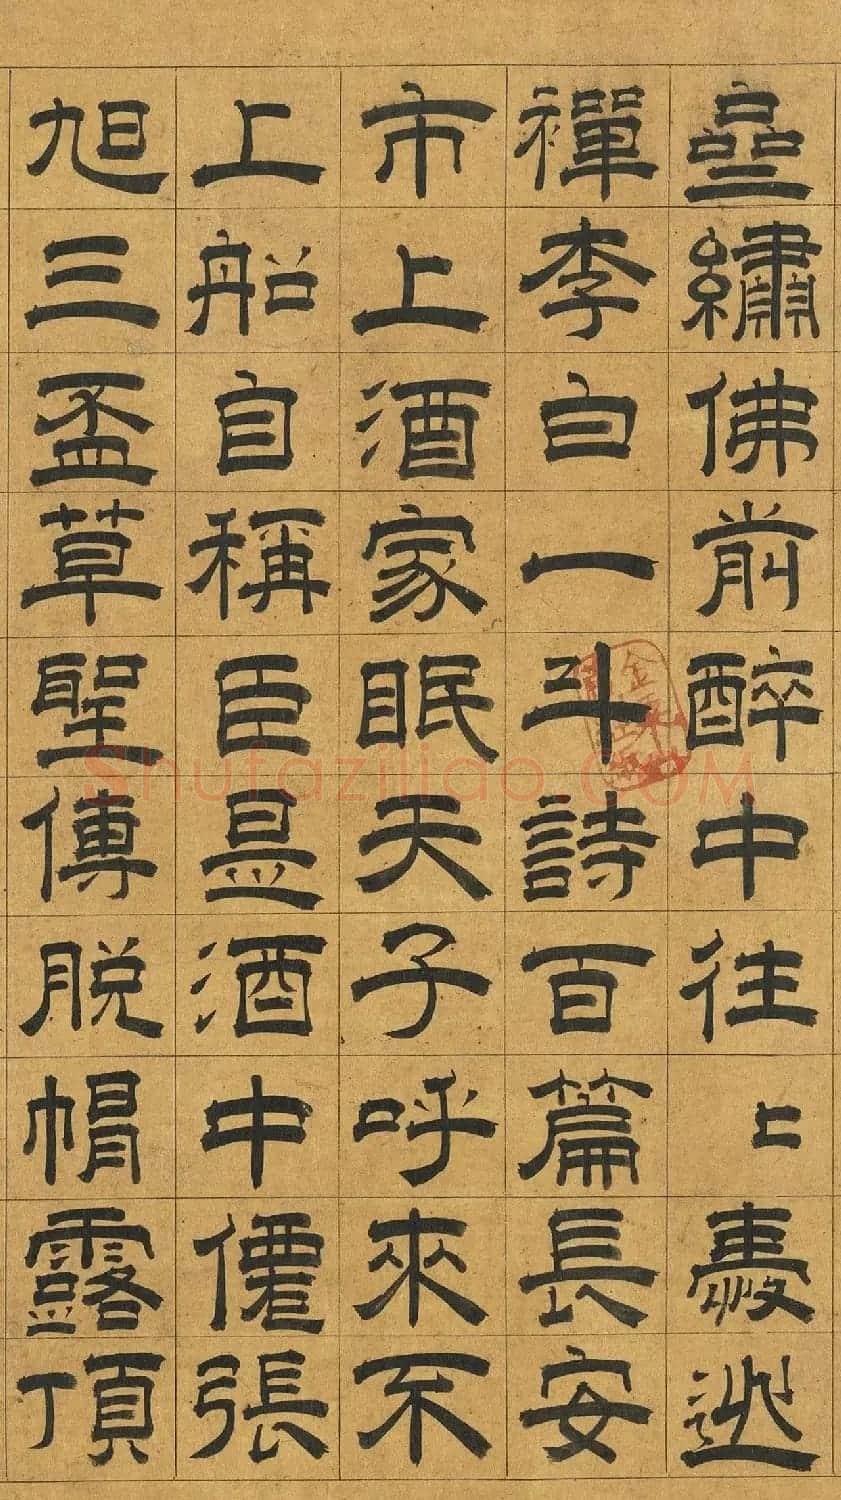 壘繡佛前醉中往〻愛逃
禪李白一斗詩百篇長安
市上酒家眠天子呼來不
上船自稱臣是酒中僊張
旭三盃草聖傳脫帽露頂
Shufaziliao.COM